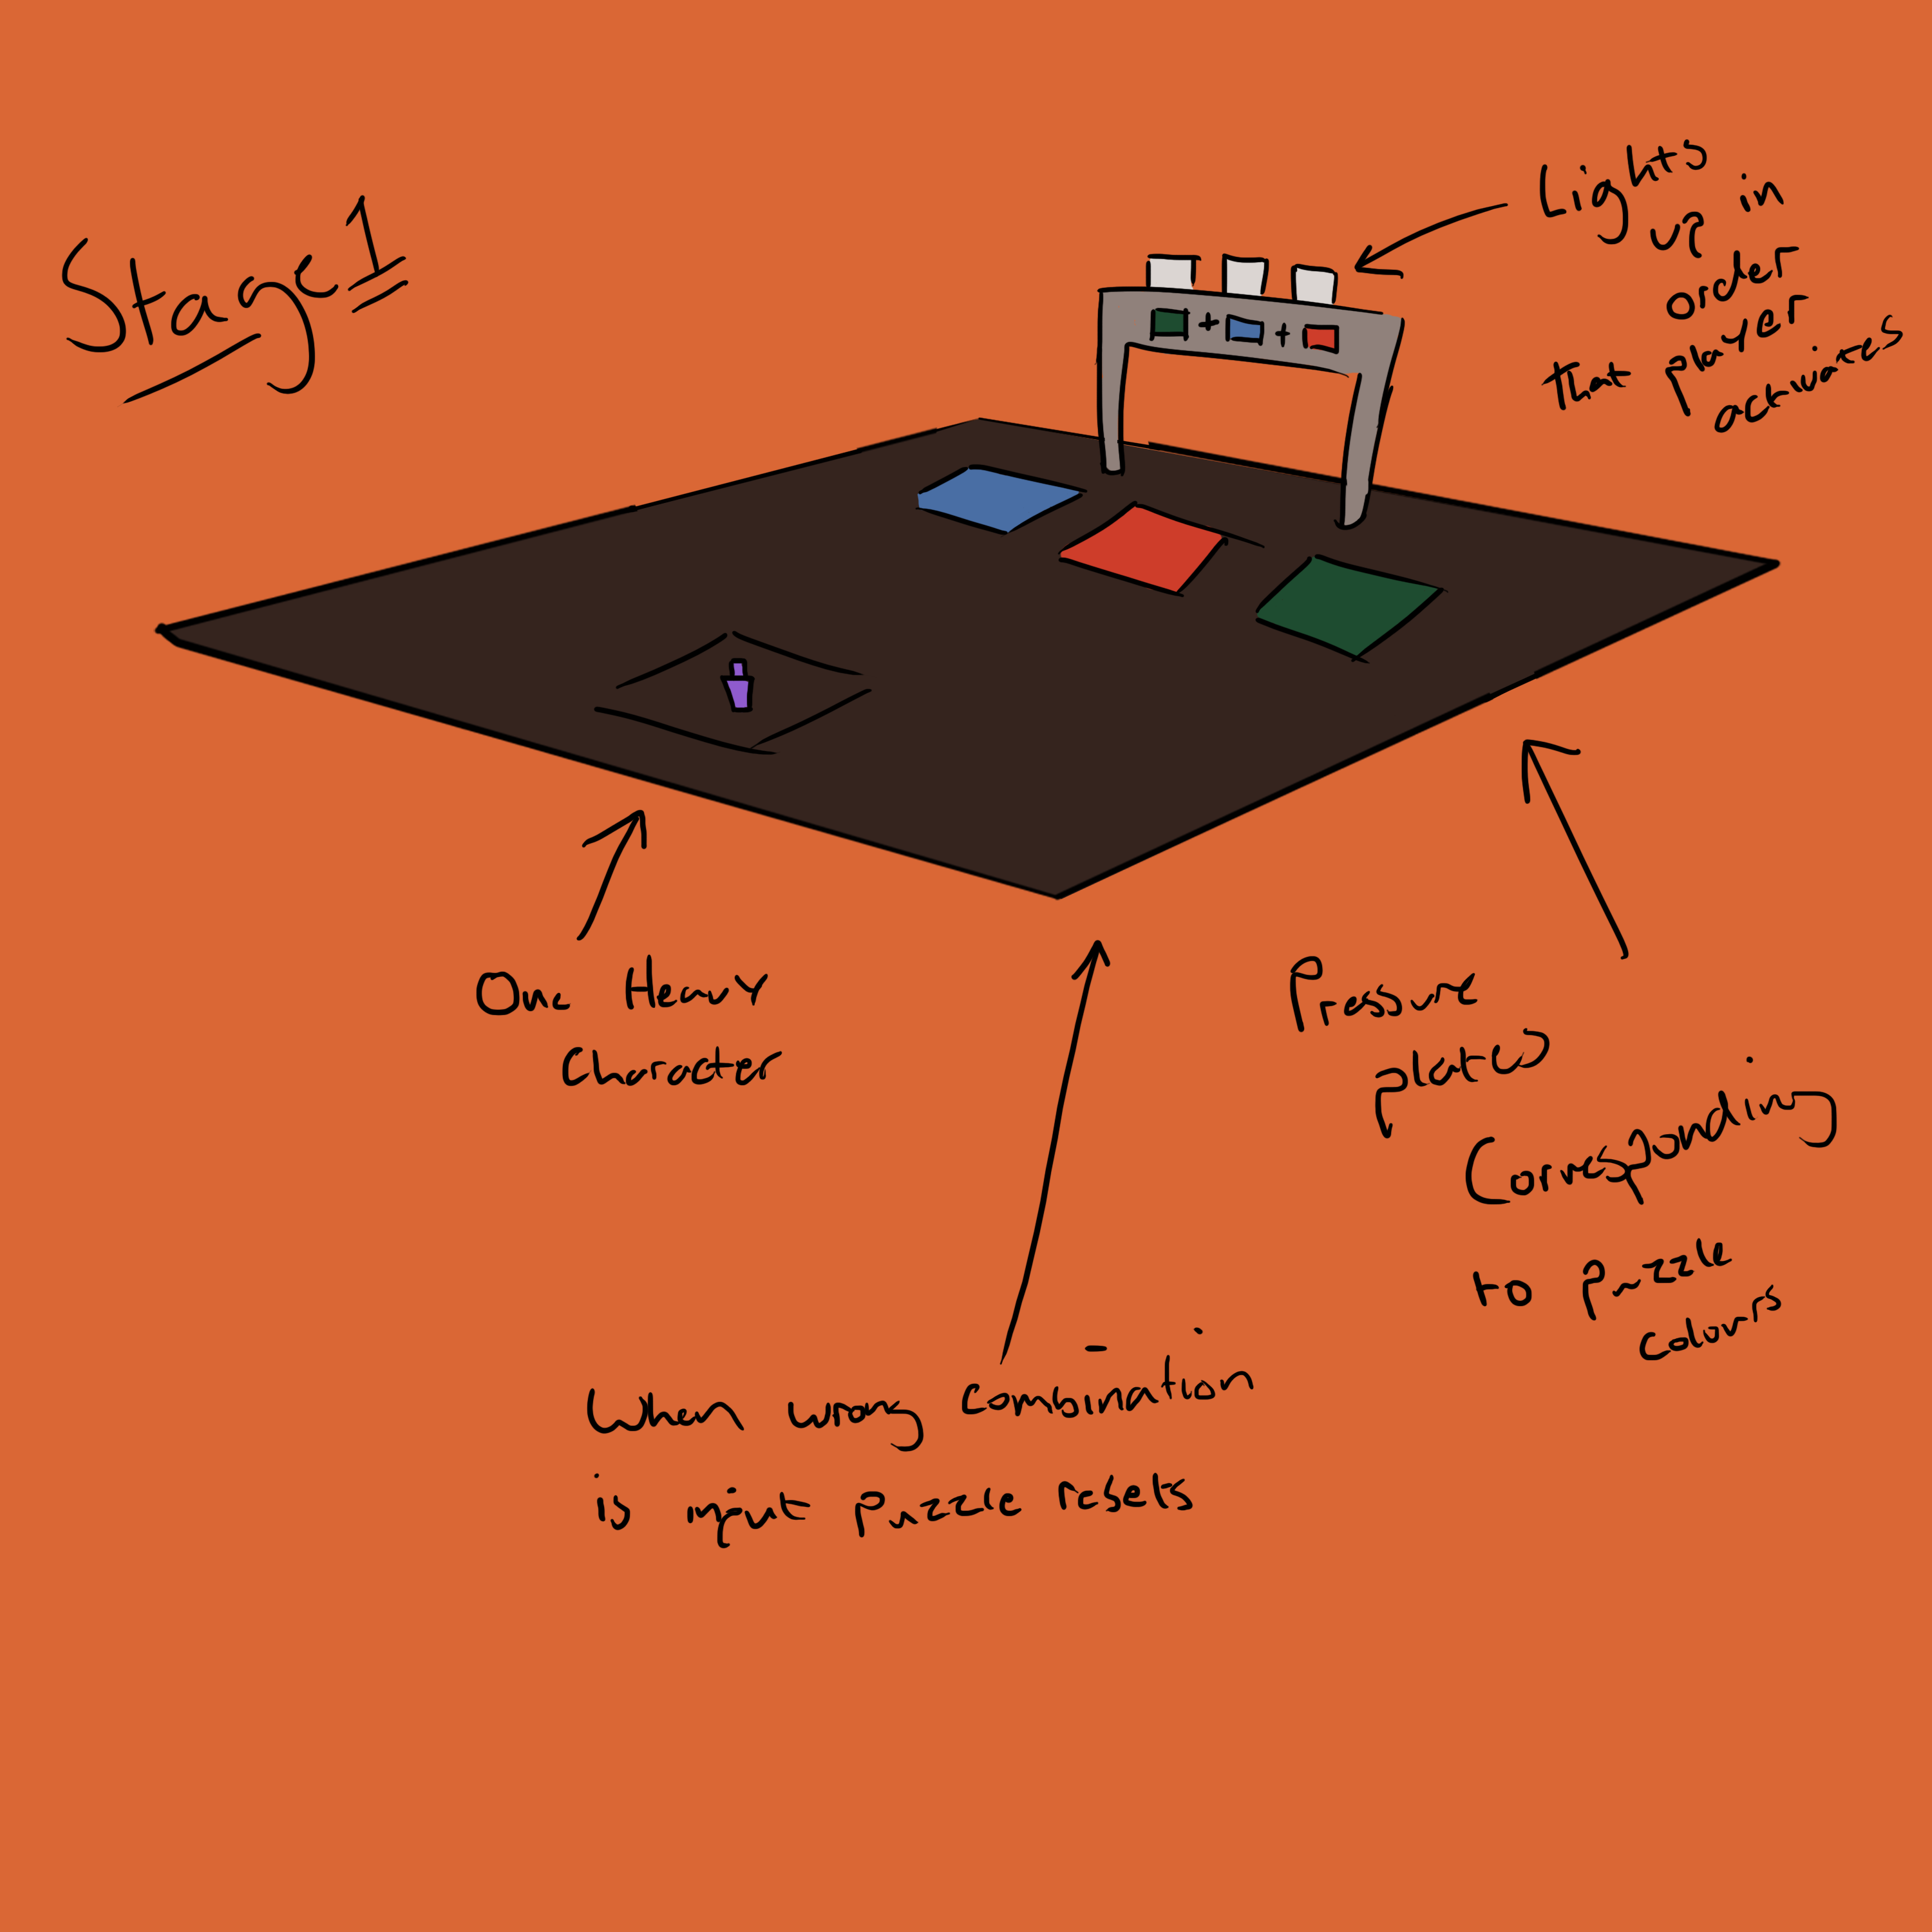 Stage 1
Lights
up in
order
that player
activates
+ +
One Heavy
Character
Pressure
plates
Corresponding
to puzzle
colours
When wrong combination
is input puzzle resets